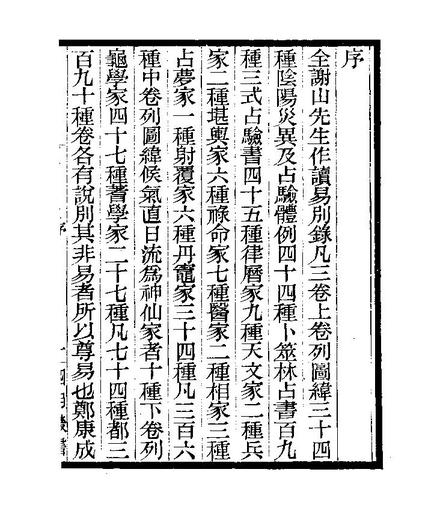 序
全謝山先生作讀易別錄凡三卷上卷列圖緯三十四
種陰陽災異及占驗體例四十四種卜筮林占書百九
種三式占驗書四十五種律曆家九種天文家二種兵
家二種堪輿家六種祿命家七種醫家二種相家三種
占夢家一種射覆家六種丹竈家三十四種凡三百六
種中卷列圖緯候氣直日流為神仙家者十種下卷列
龜學家四十七種蓍學家二十七種凡七十四種都三
百九十種卷各有說別其非易者所以尊易也鄭康成
序
一 四明叢書